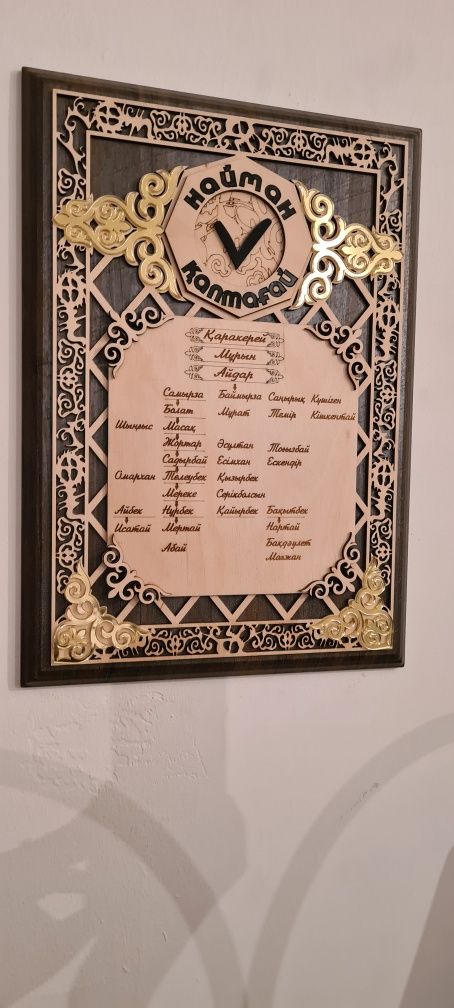 найман
қаптағай
Қаракерей
Мұрын
Айдар
Самырза Баймырза Саңырық Күшіген
Болат Мұрат Темір Кішкентай
Шыңғыс Масақ
Жортар Әсултан Тоғызбай
Садырбай Есімхан Ескендір
Омархан Төлеубек Қызырбек
Мереке Серікболсын
Айбек Нұрбек Қайырбек Бақытбек
Исатай Мертай Нартай
Абай Бақдәулет
Мағжан